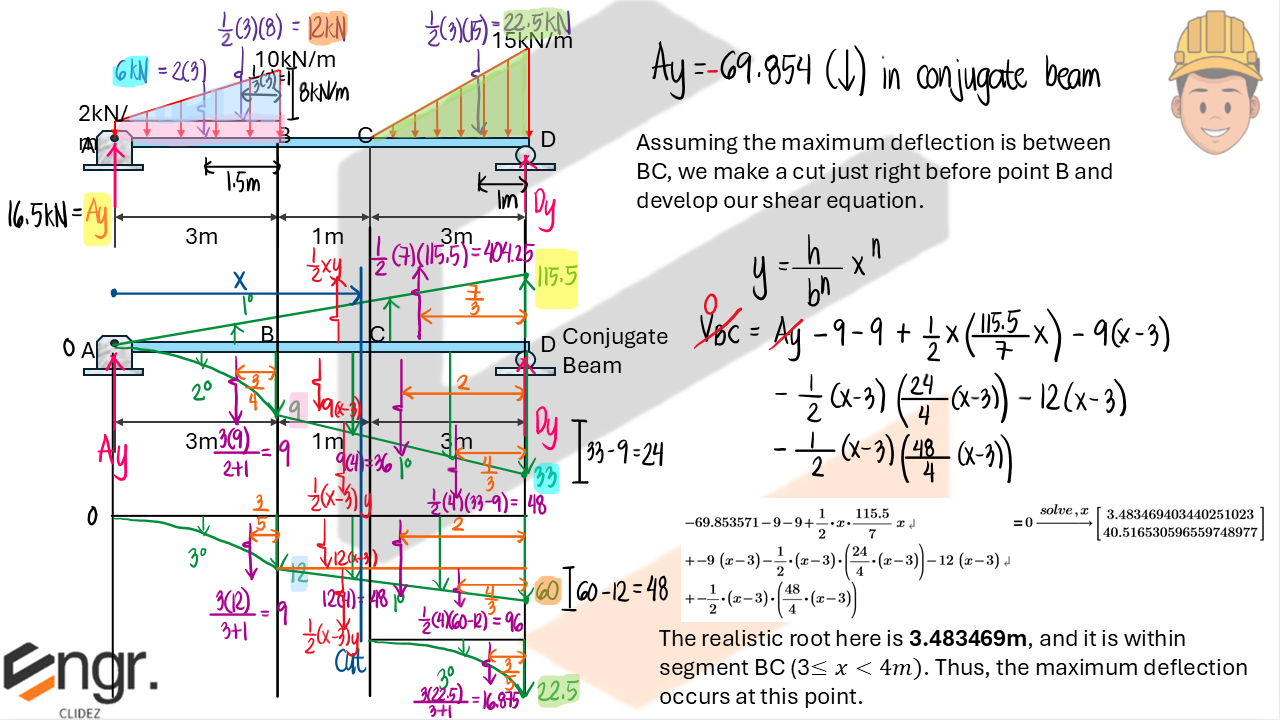 ½(3)(8) = 12kN
½(3)(15) = 22.5kN
15kN/m
6kN = 2(3)
10kN/m
8kN/m
2kN/
m
A
B
C
D
1.5m
1m
16.5kN = Ay
Dy
3m
1m
3m
½xy
½(7)(115.5) = 404.25
x
1°
7/3
115.5
0
A
B
C
D
Conjugate
Beam
2°
3/4
9
9(x-3)
2
Ay
3m
1m
3m
Dy
3(9)/2+1 = 9
9(4)=36
1°
4/3
33
33-9=24
½(x-3)y
½(4)(33-9) = 48
0
3/5
2
3°
12
12(x-3)
4/3
60
60-12=48
3(12)/3+1 = 9
12(4)=48
1°
½(4)(60-12) = 96
½(x-3)y
Cut
3°
3/5
3(22.5)/3+1 = 16.875
22.5
Engr.
CLIDEZ
Ay = -69.854 (↓) in conjugate beam
Assuming the maximum deflection is between
BC, we make a cut just right before point B and
develop our shear equation.
y = h/bⁿ xⁿ
0
VBC = Ay - 9 - 9 + ½x(115.5/7 x) - 9(x-3)
- ½(x-3)(24/4(x-3)) - 12(x-3)
- ½(x-3)(48/4(x-3))
−69.853571−9−9+1/2·x·115.5/7 x ↲
+−9 (x−3)−1/2·(x−3)·(24/4·(x−3))−12 (x−3) ↲
+−1/2·(x−3)·(48/4·(x−3))
=0 solve,x → [3.483469403440251023
40.516530596559748977]
The realistic root here is 3.483469m, and it is within
segment BC (3≤ x < 4m). Thus, the maximum deflection
occurs at this point.